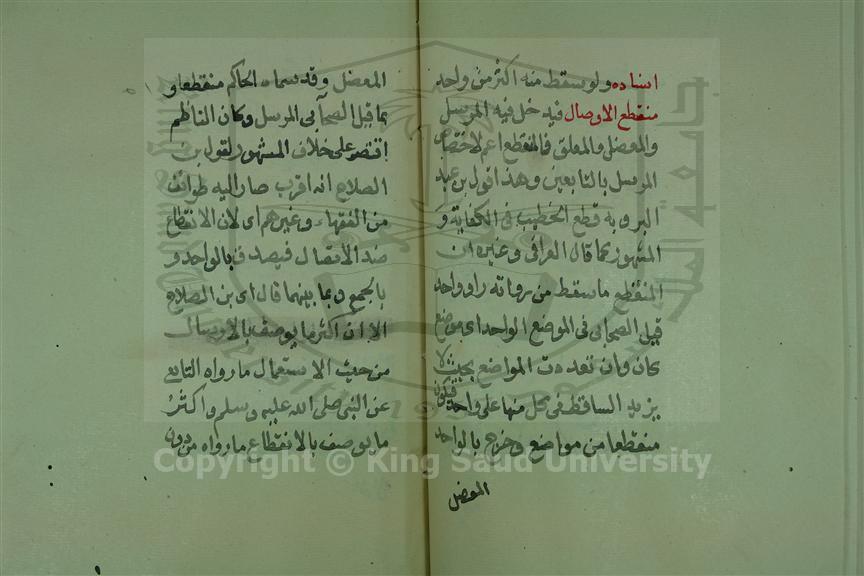 اسناده ولو سقط منه اكثر من واحد
منقطع الاوصال فيدخل فيه المرسل
والمعضل والمعلق فالمنقطع اعم لاختصاص
المرسل بالتابعين وهذا قول بن عبد
البر وبه قطع الخطيب في الكفاية و
المشهور كما قال العراقي وغيره ان
المنقطع ما سقط من رواته راو واحد
قبل الصحابي في الموضع الواحد اى موضع
كان وان تعددت المواضع بحيث لا
يزيد الساقط في كل منها على واحد فيكون
منقطعا من مواضع وخرج بالواحد
المعضل
المعضل وقد سماه الحاكم منقطعا و
بما قبل الصحابي المرسل وكان الناظم
اقتصر على خلاف المشهور لقول بن
الصلاح انه اقرب صار اليه طوائف
من الفقهاء وغيرهم اى لان الانقطاع
ضد الاتصال فيصدق بالواحد و
بالجمع وبما بينهما قال اى بن الصلاح
الا ان اكثر ما يوصف بالارسال
من حيث الاستعمال ما رواه التابعى
عن النبي صلى الله عليه وسلم واكثر
ما يوصف بالانقطاع ما رواه من دون
Copyright © King Saud University